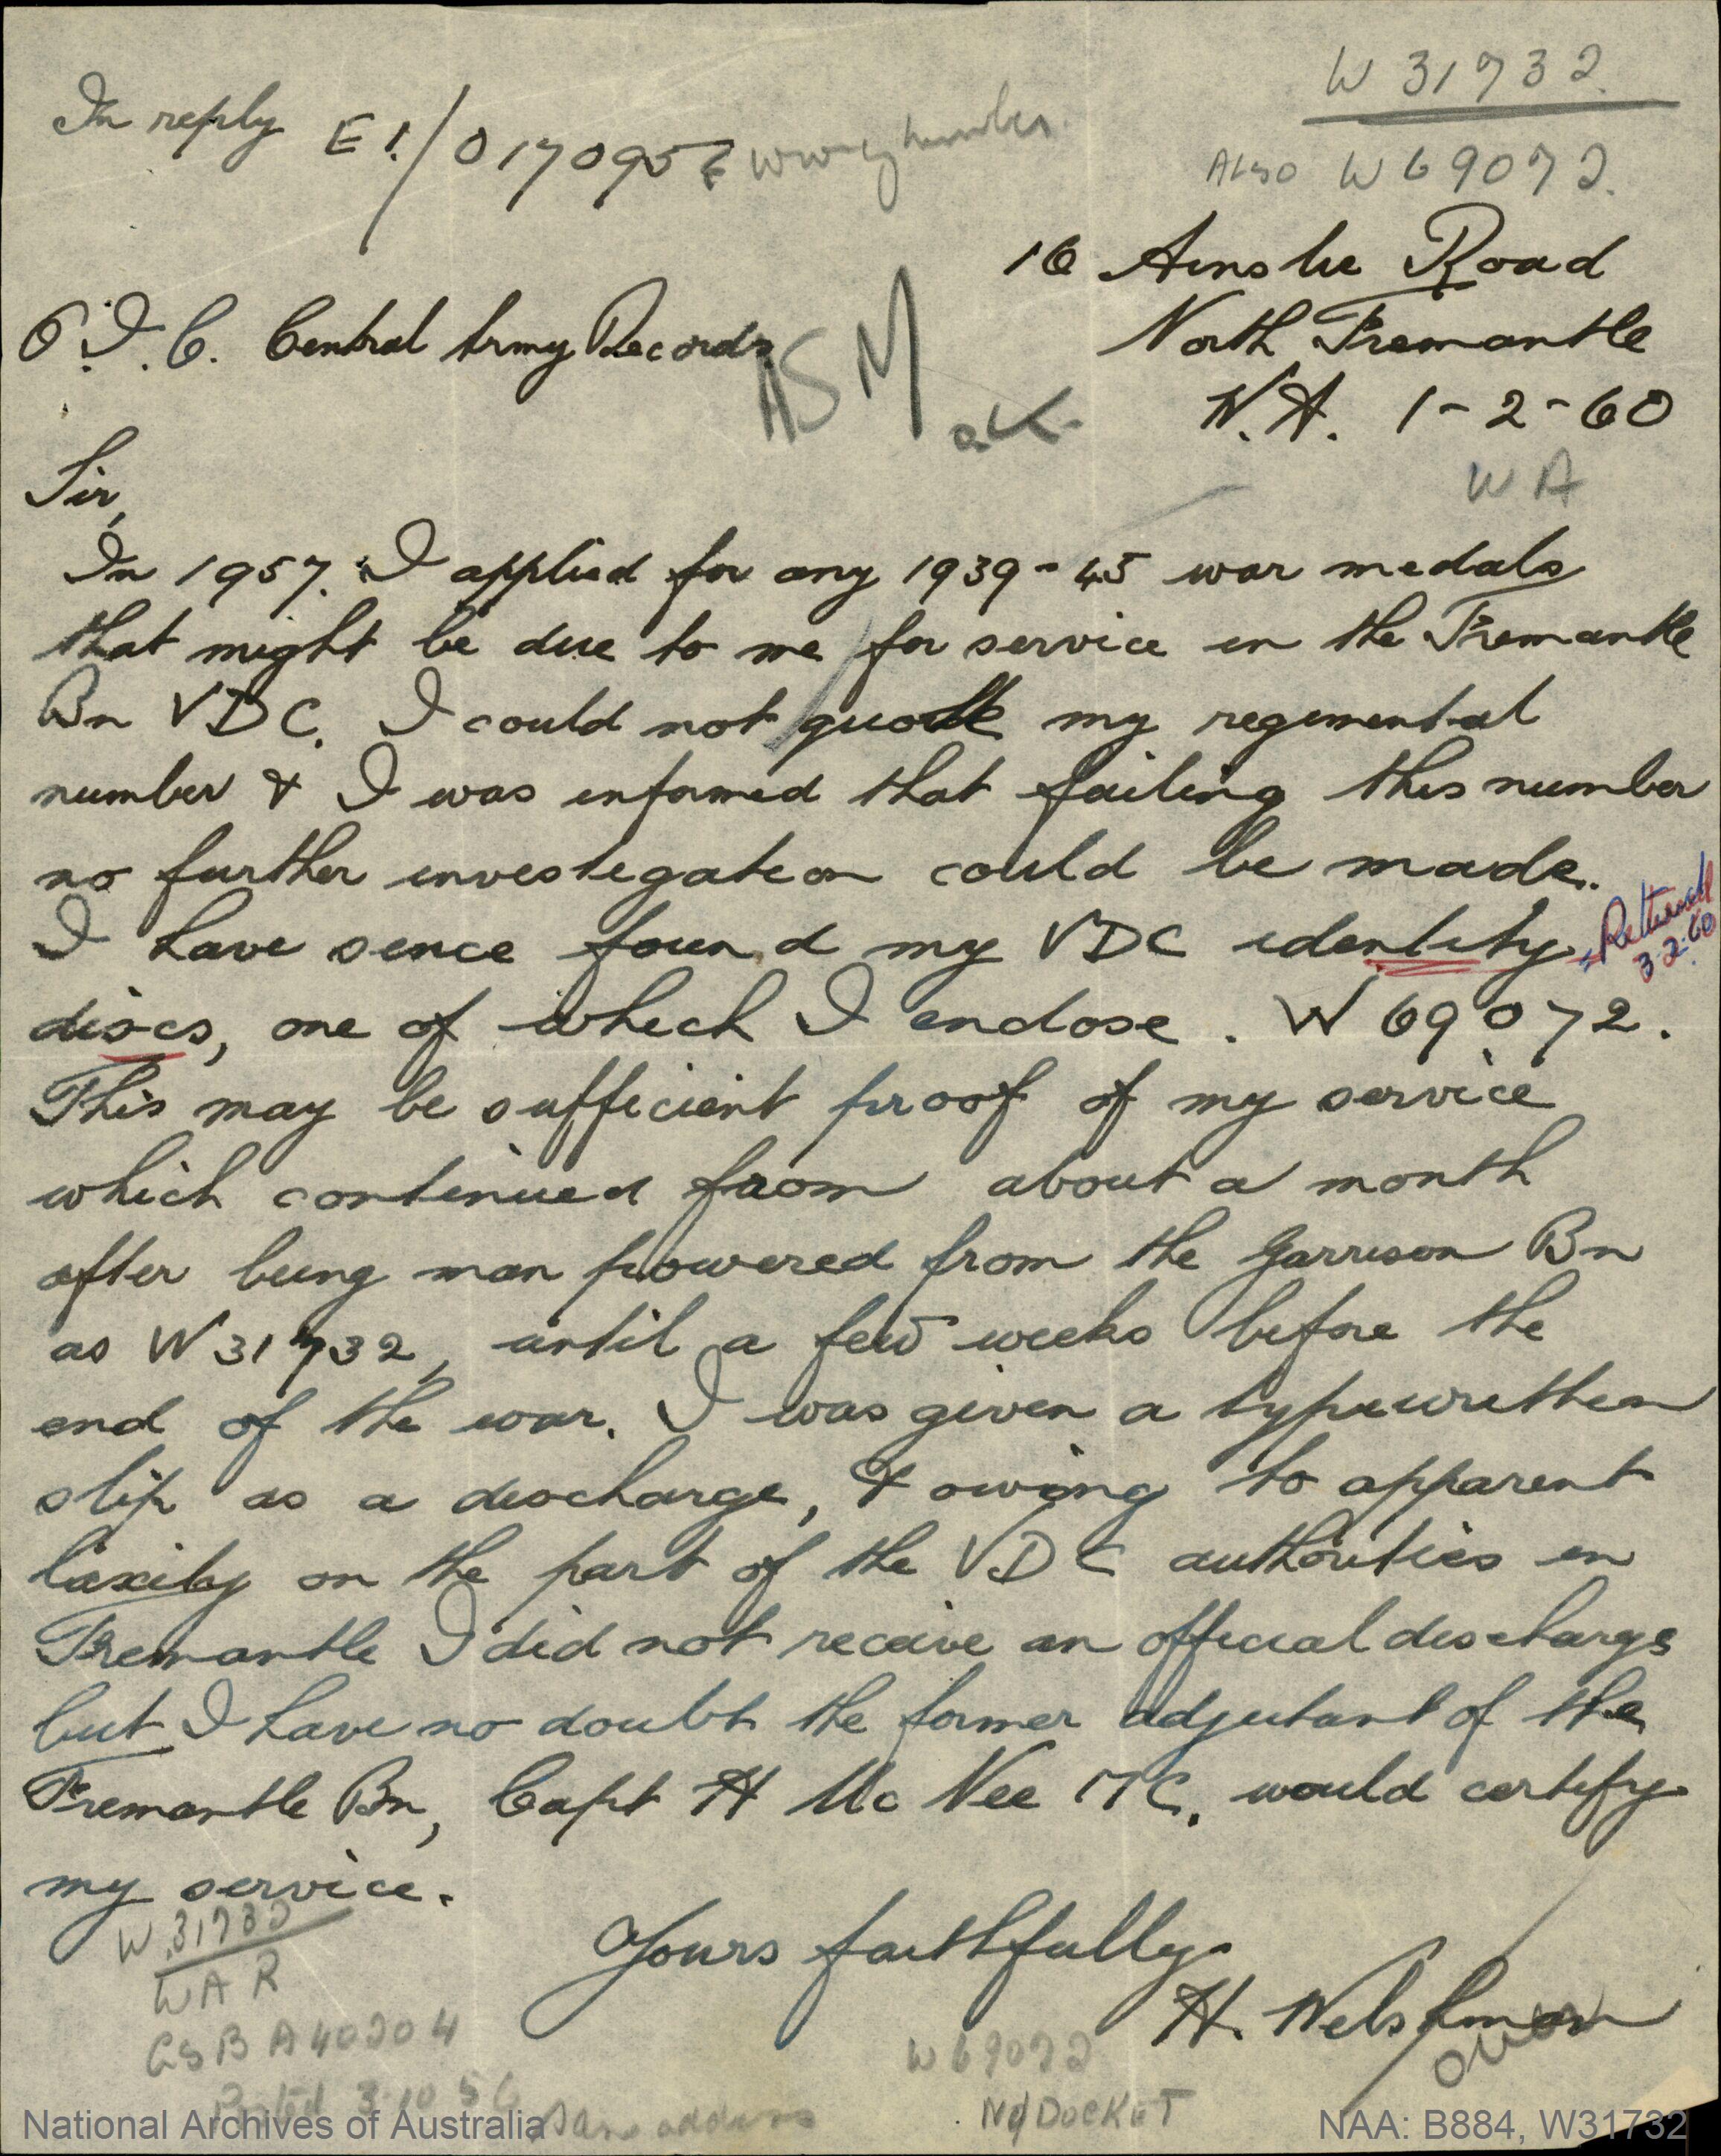 W 31732.
In reply E1/0170957 wrong number.
Also W 69072.
16 Ainslie Road
O.I.C. Central Army Records
North Fremantle
ASM
W.A. 1-2-60
WA
Sir,
In 1957. I applied for any 1939-45 war medals
that might be due to me for service in the Fremantle
Bn VDC. I could not quote my regimental
number & I was informed that failing this number
no further investigation could be made.
I have since found my VDC identity
Returned
3.2.60
discs, one of which I enclose. W 69072.
This may be sufficient proof of my service
which continued from about a month
after being man powered from the Garrison Bn
as W31732, until a few weeks before the
end of the war. I was given a typewritten
slip as a discharge, & owing to apparent
laxity on the part of the VDC authorities in
Fremantle I did not receive an official discharge
but I have no doubt the former adjutant of the
Fremantle Bn, Capt H McNee MC. would certify
my service.
W 31732
WAR
Yours faithfully.
H. Welshman
over
GSB A40204
Posted 3.10.56
Same address
W 69072
No DOCKET
National Archives of Australia
NAA: B884, W31732